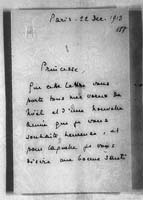 Paris - 22 Déc. 1913
Princesse
Que cette lettre vous
porte tous mes vœux de
Noël et d'une nouvelle
année que je vous
souhaite heureuse, et
pour laquelle je vous
désire une bonne santé